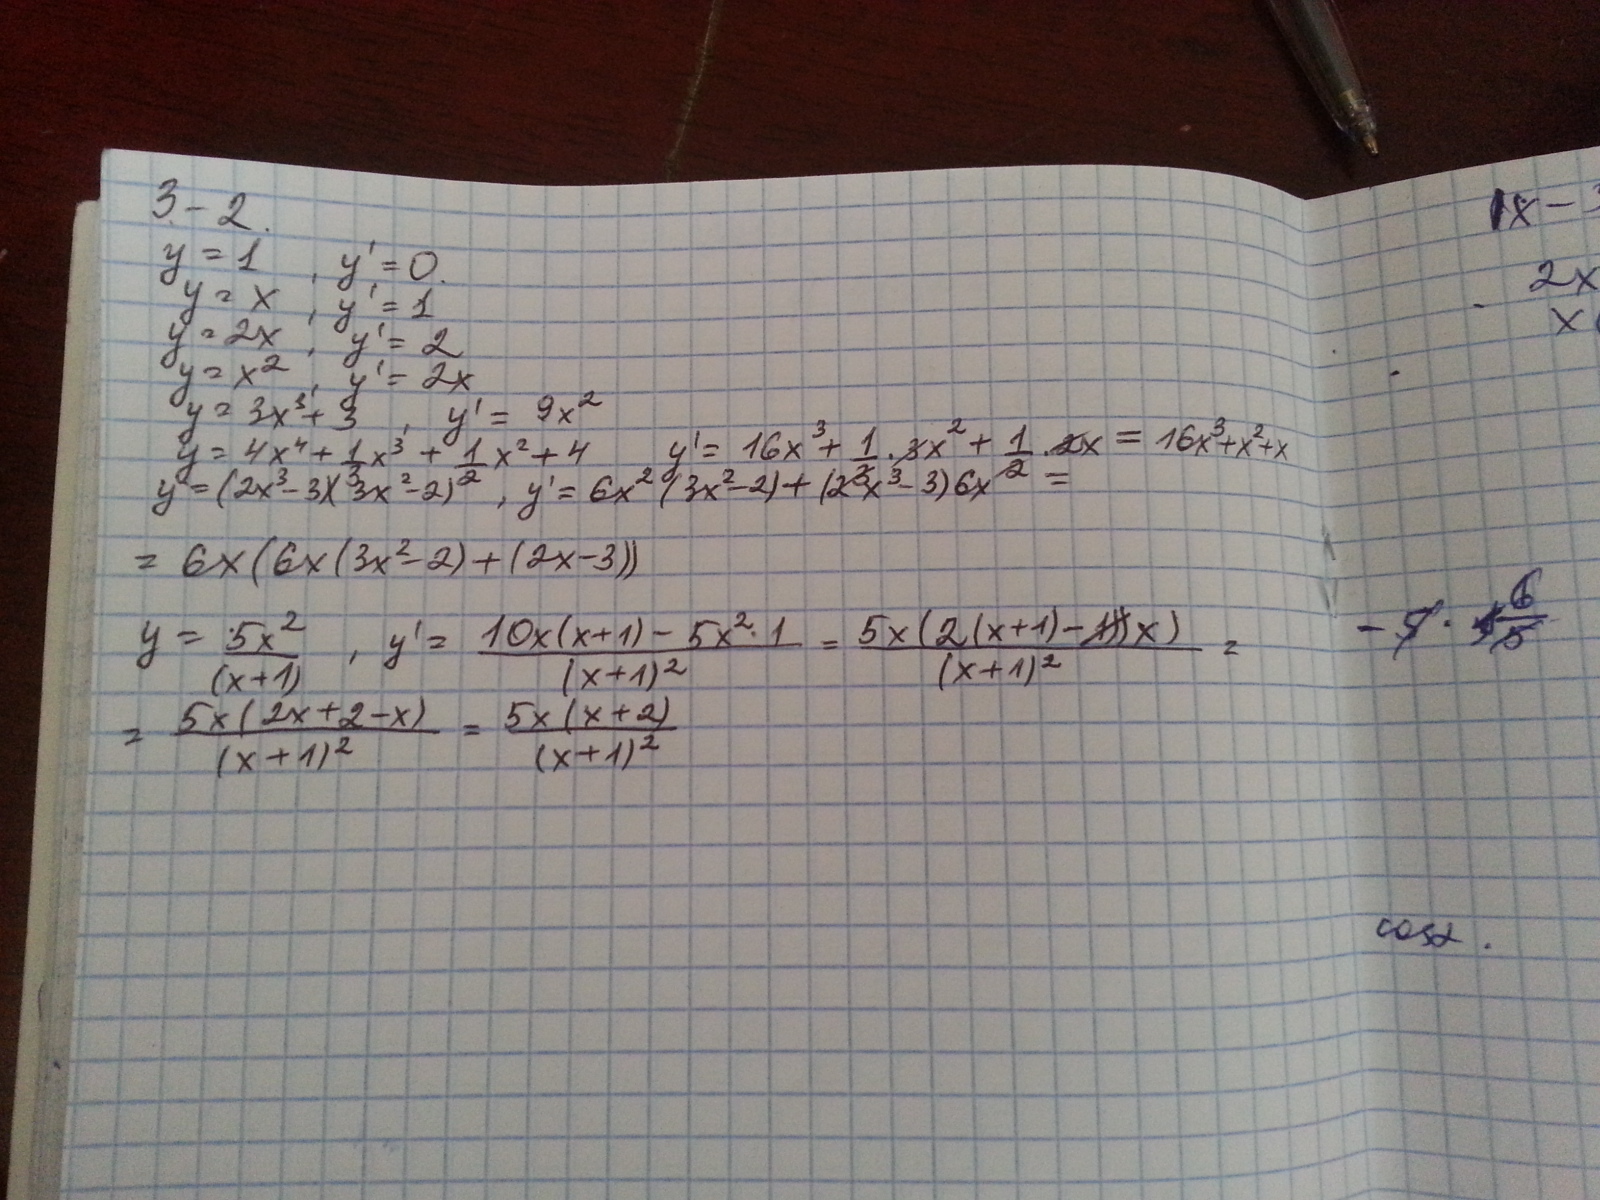 3-2.
y = 1 , y' = 0.
y = x , y' = 1
y = 2x , y' = 2
y = x² , y' = 2x
y = 3x³ + 3 , y' = 9x²
y = 4x⁴ + 1/3 x³ + 1/2 x² + 4 y' = 16x³ + 1/3 · 3x² + 1/2 · 2x = 16x³ + x² + x
y = (2x³ - 3)(3x² - 2) , y' = 6x² (3x² - 2) + (2x³ - 3) 6x =
= 6x (6x (3x² - 2) + (2x - 3))
y = 5x²/(x+1) , y' = (10x(x+1) - 5x² · 1)/(x+1)² = 5x(2(x+1) - x)/(x+1)² =
= 5x(2x+2-x)/(x+1)² = 5x(x+2)/(x+1)²
1x - 3
2x
x(
6
cosα.